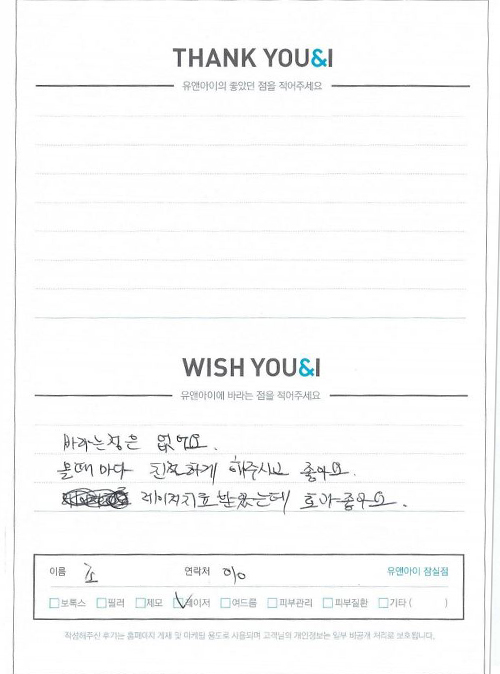 THANK YOU&I
유앤아이의 좋았던 점을 적어주세요
WISH YOU&I
유앤아이에 바라는 점을 적어주세요
바라는점은 없어요.
올때마다 친절하게 해주시고 좋아요.
레이저치료 받았는데 효과좋아요.
이름 조 연락처 010 유앤아이 잠실점
보톡스 필러 제모 레이저 여드름 피부관리 피부질환 기타 ( )
작성해주신 후기는 홈페이지 게재 및 마케팅 용도로 사용되며 고객님의 개인정보는 일부 비공개 처리로 보호됩니다.